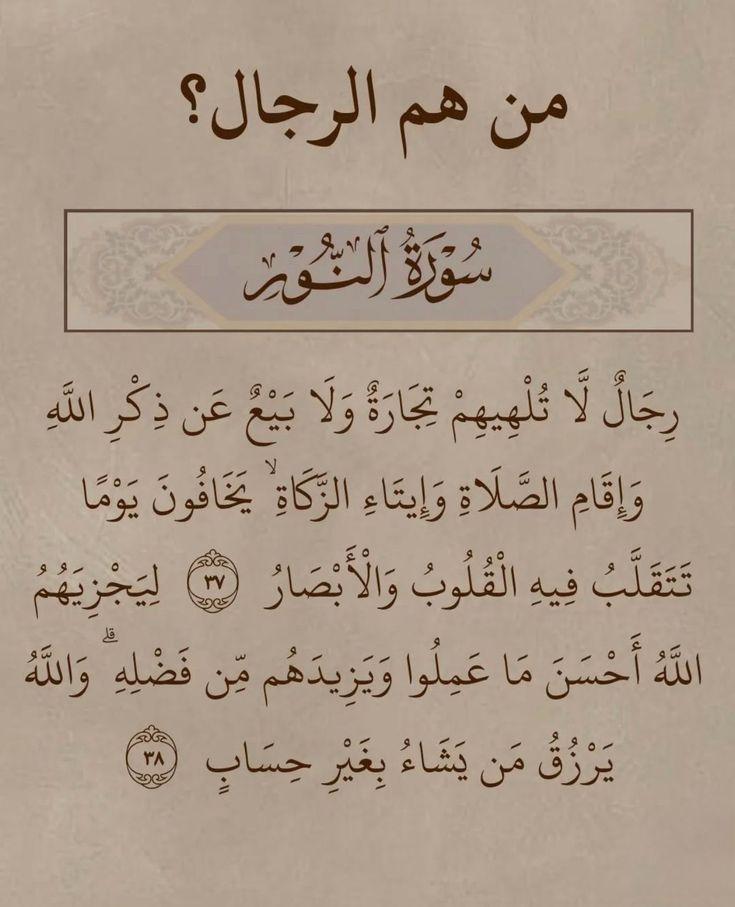 من هم الرجال؟
سُوْرَةُ ٱلنُّوْرِ
رِجَالٌ لَّا تُلْهِيهِمْ تِجَارَةٌ وَلَا بَيْعٌ عَن ذِكْرِ اللَّهِ
وَإِقَامِ الصَّلَاةِ وَإِيتَاءِ الزَّكَاةِ ۙ يَخَافُونَ يَوْمًا
تَتَقَلَّبُ فِيهِ الْقُلُوبُ وَالْأَبْصَارُ ٣٧ لِيَجْزِيَهُمُ
اللَّهُ أَحْسَنَ مَا عَمِلُوا وَيَزِيدَهُم مِّن فَضْلِهِ ۗ وَاللَّهُ
يَرْزُقُ مَن يَشَاءُ بِغَيْرِ حِسَابٍ ٣٨